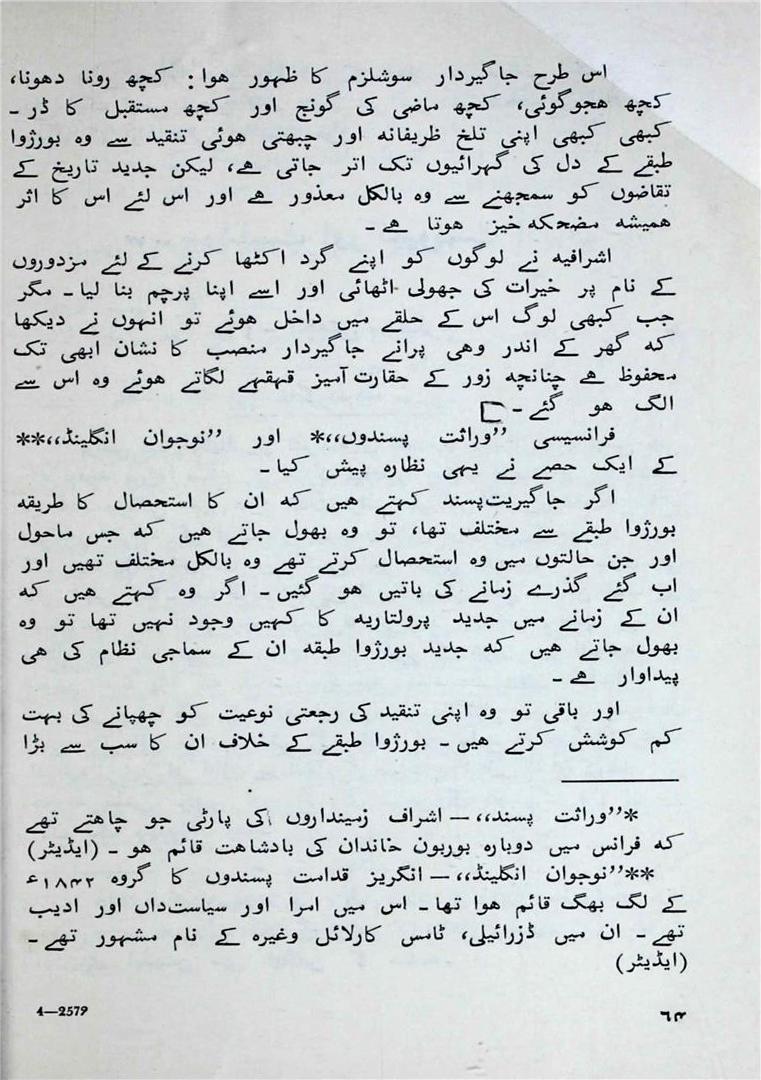 اس طرح جاگیردار سوشلزم کا ظہور ہوا: کچھ رونا دھونا،
کچھ ہجوگوئی، کچھ ماضی کی گونج اور کچھ مستقبل کا ڈر ۔
کبھی کبھی اپنی تلخ ظریفانہ اور چبھتی ہوئی تنقید سے وہ بورژوا
طبقے کے دل کی گہرائیوں تک اتر جاتی ہے، لیکن جدید تاریخ کے
تقاضوں کو سمجھنے سے وہ بالکل معذور ہے اور اس لئے اس کا اثر
ہمیشہ مضحکہ خیز ہوتا ہے ۔
اشرافیہ نے لوگوں کو اپنے گرد اکٹھا کرنے کے لئے مزدوروں
کے نام پر خیرات کی جھولی اٹھائی اور اسے اپنا پرچم بنا لیا ۔ مگر
جب کبھی لوگ اس کے حلقے میں داخل ہوئے تو انہوں نے دیکھا
کہ گھر کے اندر وہی پرانے جاگیردار منصب کا نشان ابھی تک
محفوظ ہے چنانچہ زور کے حقارت آمیز قہقہے لگاتے ہوئے وہ اس سے
الگ ہو گئے ۔
فرانسیسی ”وراثت پسندوں،،* اور ”نوجوان انگلینڈ،،**
کے ایک حصے نے یہی نظارہ پیش کیا ۔
اگر جاگیریت‌پسند کہتے ہیں کہ ان کا استحصال کا طریقہ
بورژوا طبقے سے مختلف تھا، تو وہ بھول جاتے ہیں کہ جس ماحول
اور جن حالتوں میں وہ استحصال کرتے تھے وہ بالکل مختلف تھیں اور
اب گئے گذرے زمانے کی باتیں ہو گئیں ۔ اگر وہ کہتے ہیں کہ
ان کے زمانے میں جدید پرولتاریہ کا کہیں وجود نہیں تھا تو وہ
بھول جاتے ہیں کہ جدید بورژوا طبقہ ان کے سماجی نظام کی ہی
پیداوار ہے ۔
اور باقی تو وہ اپنی تنقید کی رجعتی نوعیت کو چھپانے کی بہت
کم کوشش کرتے ہیں ۔ بورژوا طبقے کے خلاف ان کا سب سے بڑا
*”وراثت پسند،، — اشراف زمینداروں کی پارٹی جو چاہتے تھے
کہ فرانس میں دوبارہ بوربون خاندان کی بادشاہت قائم ہو ۔ (ایڈیٹر)
**”نوجوان انگلینڈ،، — انگریز قدامت پسندوں کا گروہ ۱۸۴۲ء
کے لگ بھگ قائم ہوا تھا ۔ اس میں امرا اور سیاست‌داں اور ادیب
تھے ۔ ان میں ڈزرائیلی، ٹامس کارلائل وغیرہ کے نام مشہور تھے ۔
(ایڈیٹر)
4—2579
۶۴